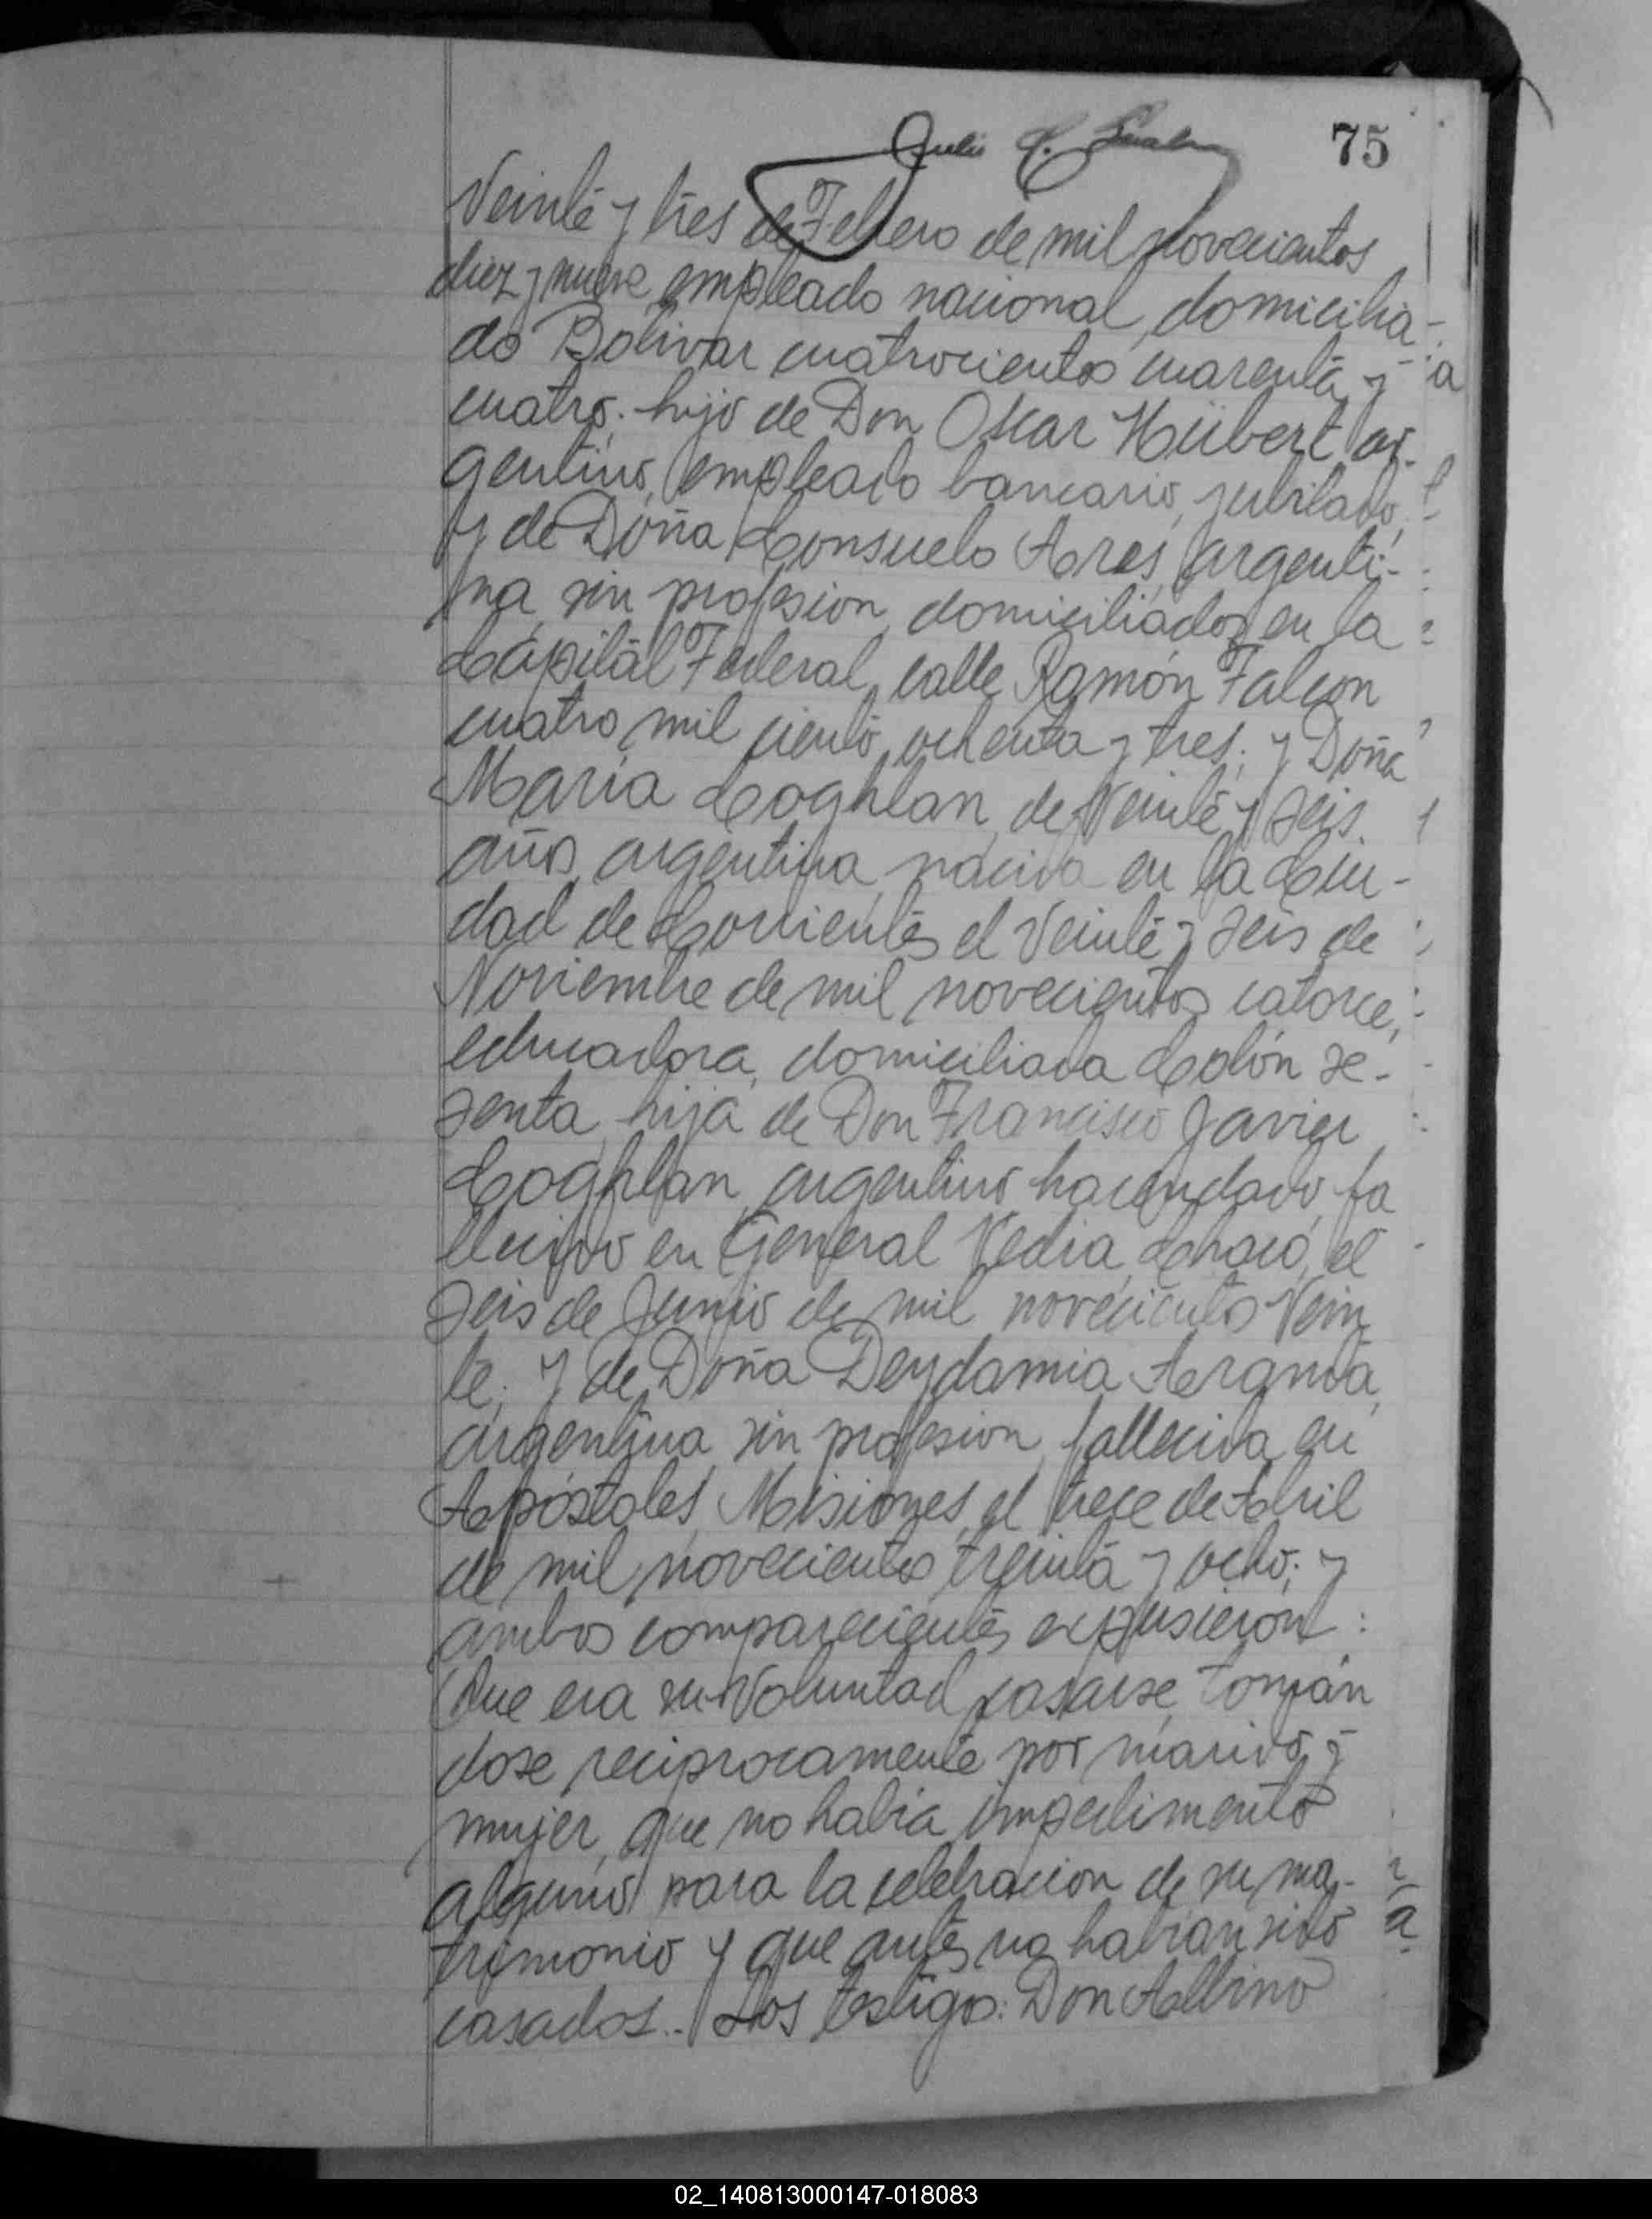 75
Julio C.
Veinte y tres de Febrero de mil novecientos
diez y nueve, empleado nacional, domicilia-
do Bolivar cuatrocientos cuarenta y
cuatro; hijo de Don Oscar Hübert, ar-
gentino, empleado bancario, jubilado,
y de Doña Consuelo Ares, argenti-
na, sin profesion, domiciliados en la
Capital Federal, calle Ramón Falcon
cuatro mil ciento ochenta y tres; y Doña
María Coghlan, de Veinte y seis
años, argentina, nacida en la Ciu-
dad de Corrientes el Veinte y seis de
Noviembre de mil novecientos catorce,
educadora, domiciliada Colón se-
senta, hija de Don Francisco Javier
Coghlan, argentino, hacendado, fa
llecido en General Vedia, Chaco, el
seis de Junio de mil novecientos Vein
te; y de Doña Deydamia Aranda,
argentina, sin profesion, fallecida en
Apóstoles, Misiones, el trece de Abril
de mil novecientos treinta y ocho; y
ambos comparecientes expusieron:
Que era su Voluntad casarse, tomán
dose reciprocamente por marido y
mujer, que no habia impedimento
alguno para la celebracion de su ma-
trimonio y que antes no habian sido
casados.. Los testigos: Don Albino
02_140813000147-018083